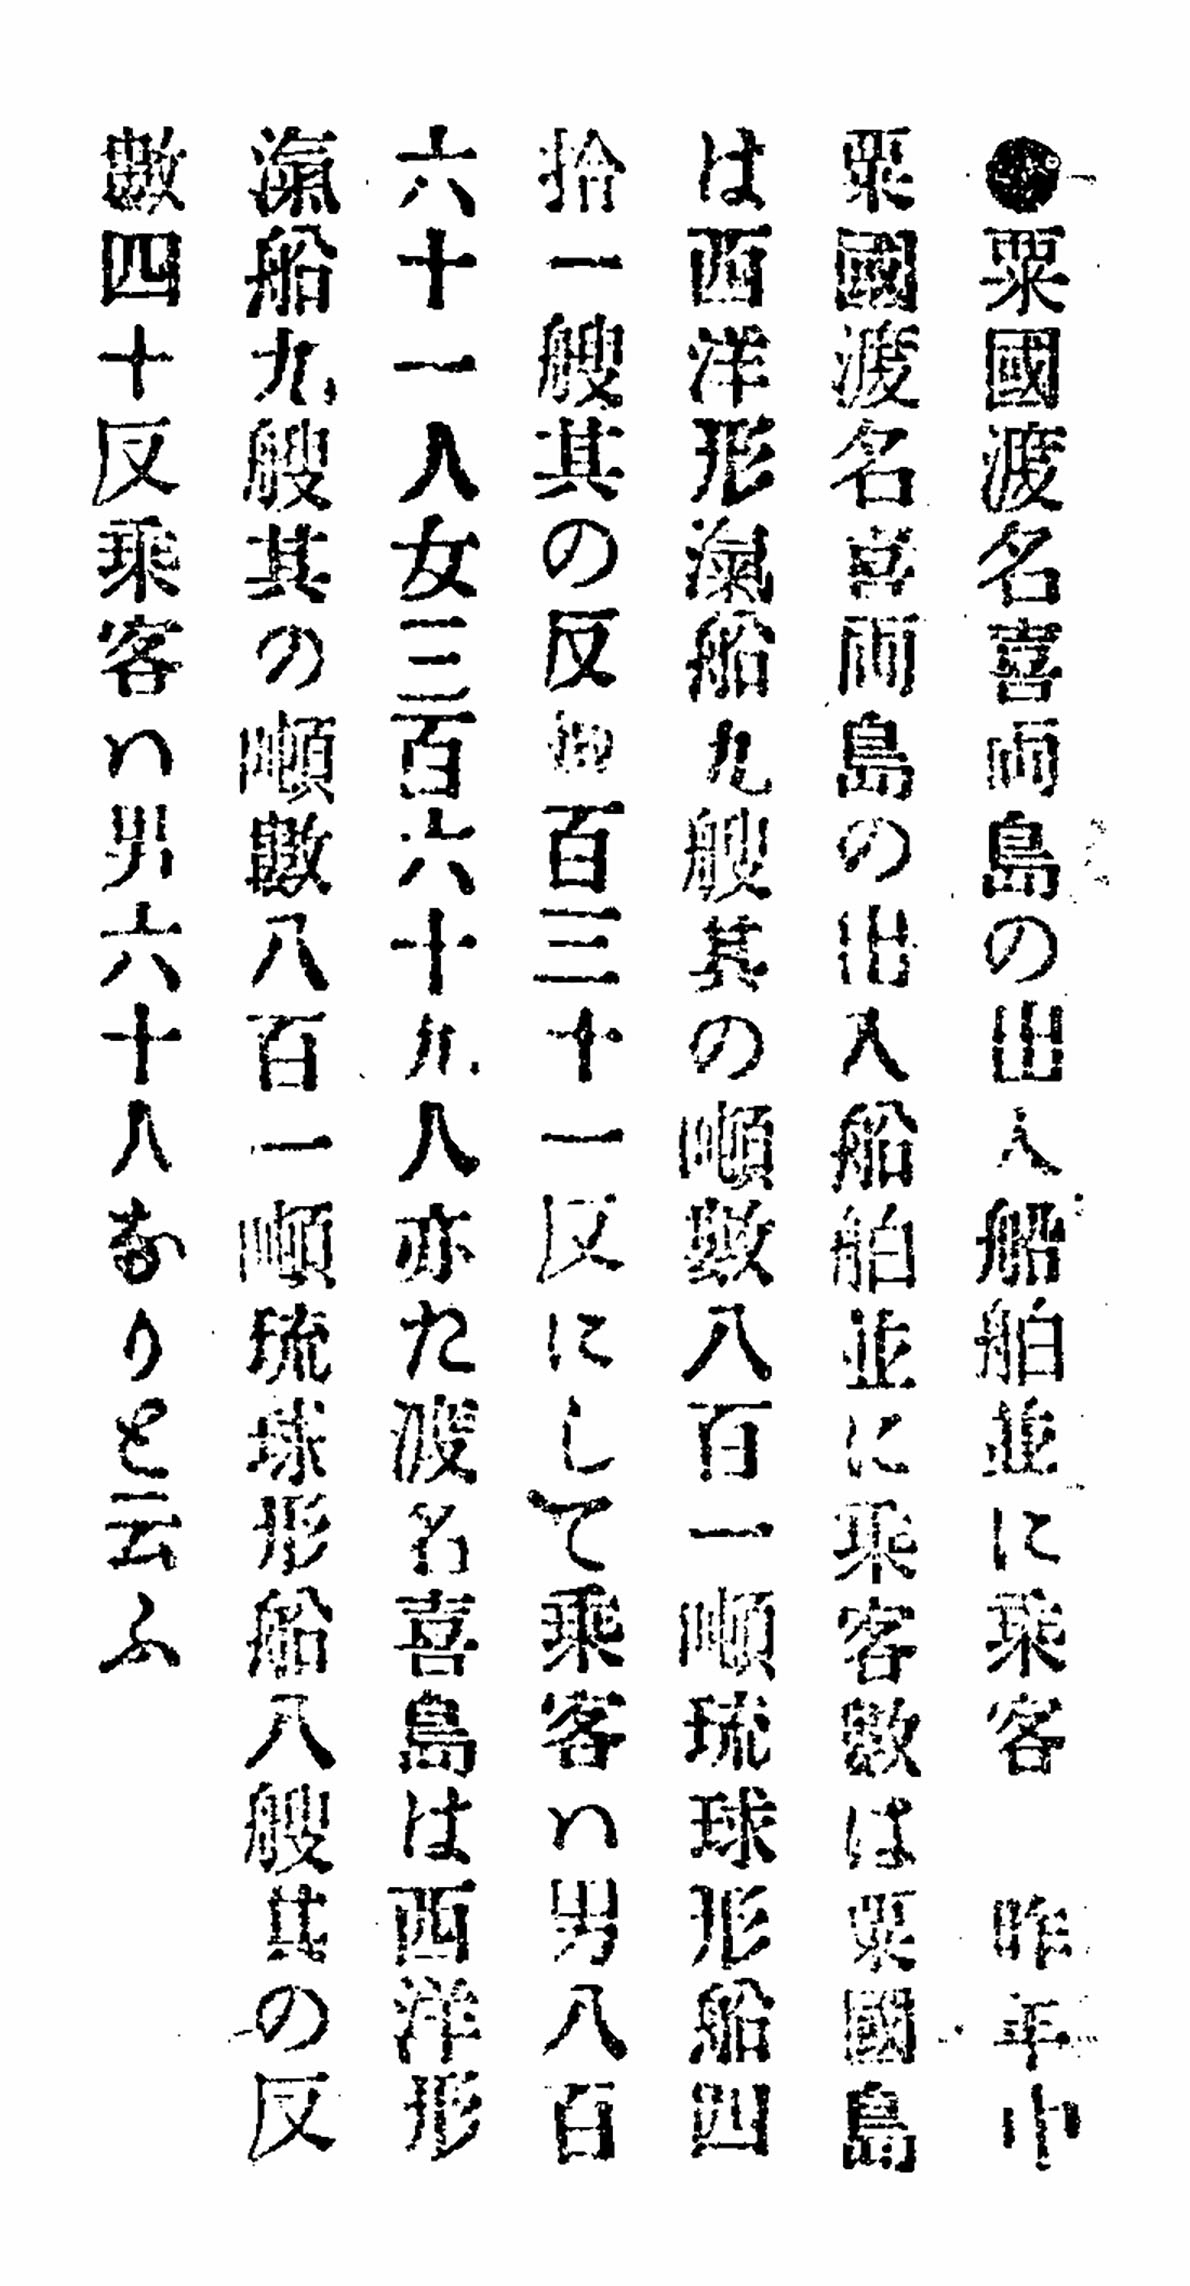 ●粟國渡名喜両島の出入船舶並に乘客　昨年中
粟國渡名喜両島の出入船舶並に乘客數は粟國島
は西洋形滊船九艘其の噸數八百一噸琉球形船四
拾一艘其の反 百三十一反にして乘客ハ男八百
六十一人女三百六十九人亦た渡名喜島は西洋形
滊船九艘其の噸數八百一噸琉球形船八艘其の反
數四十反乘客ハ男六十人なりと云ふ